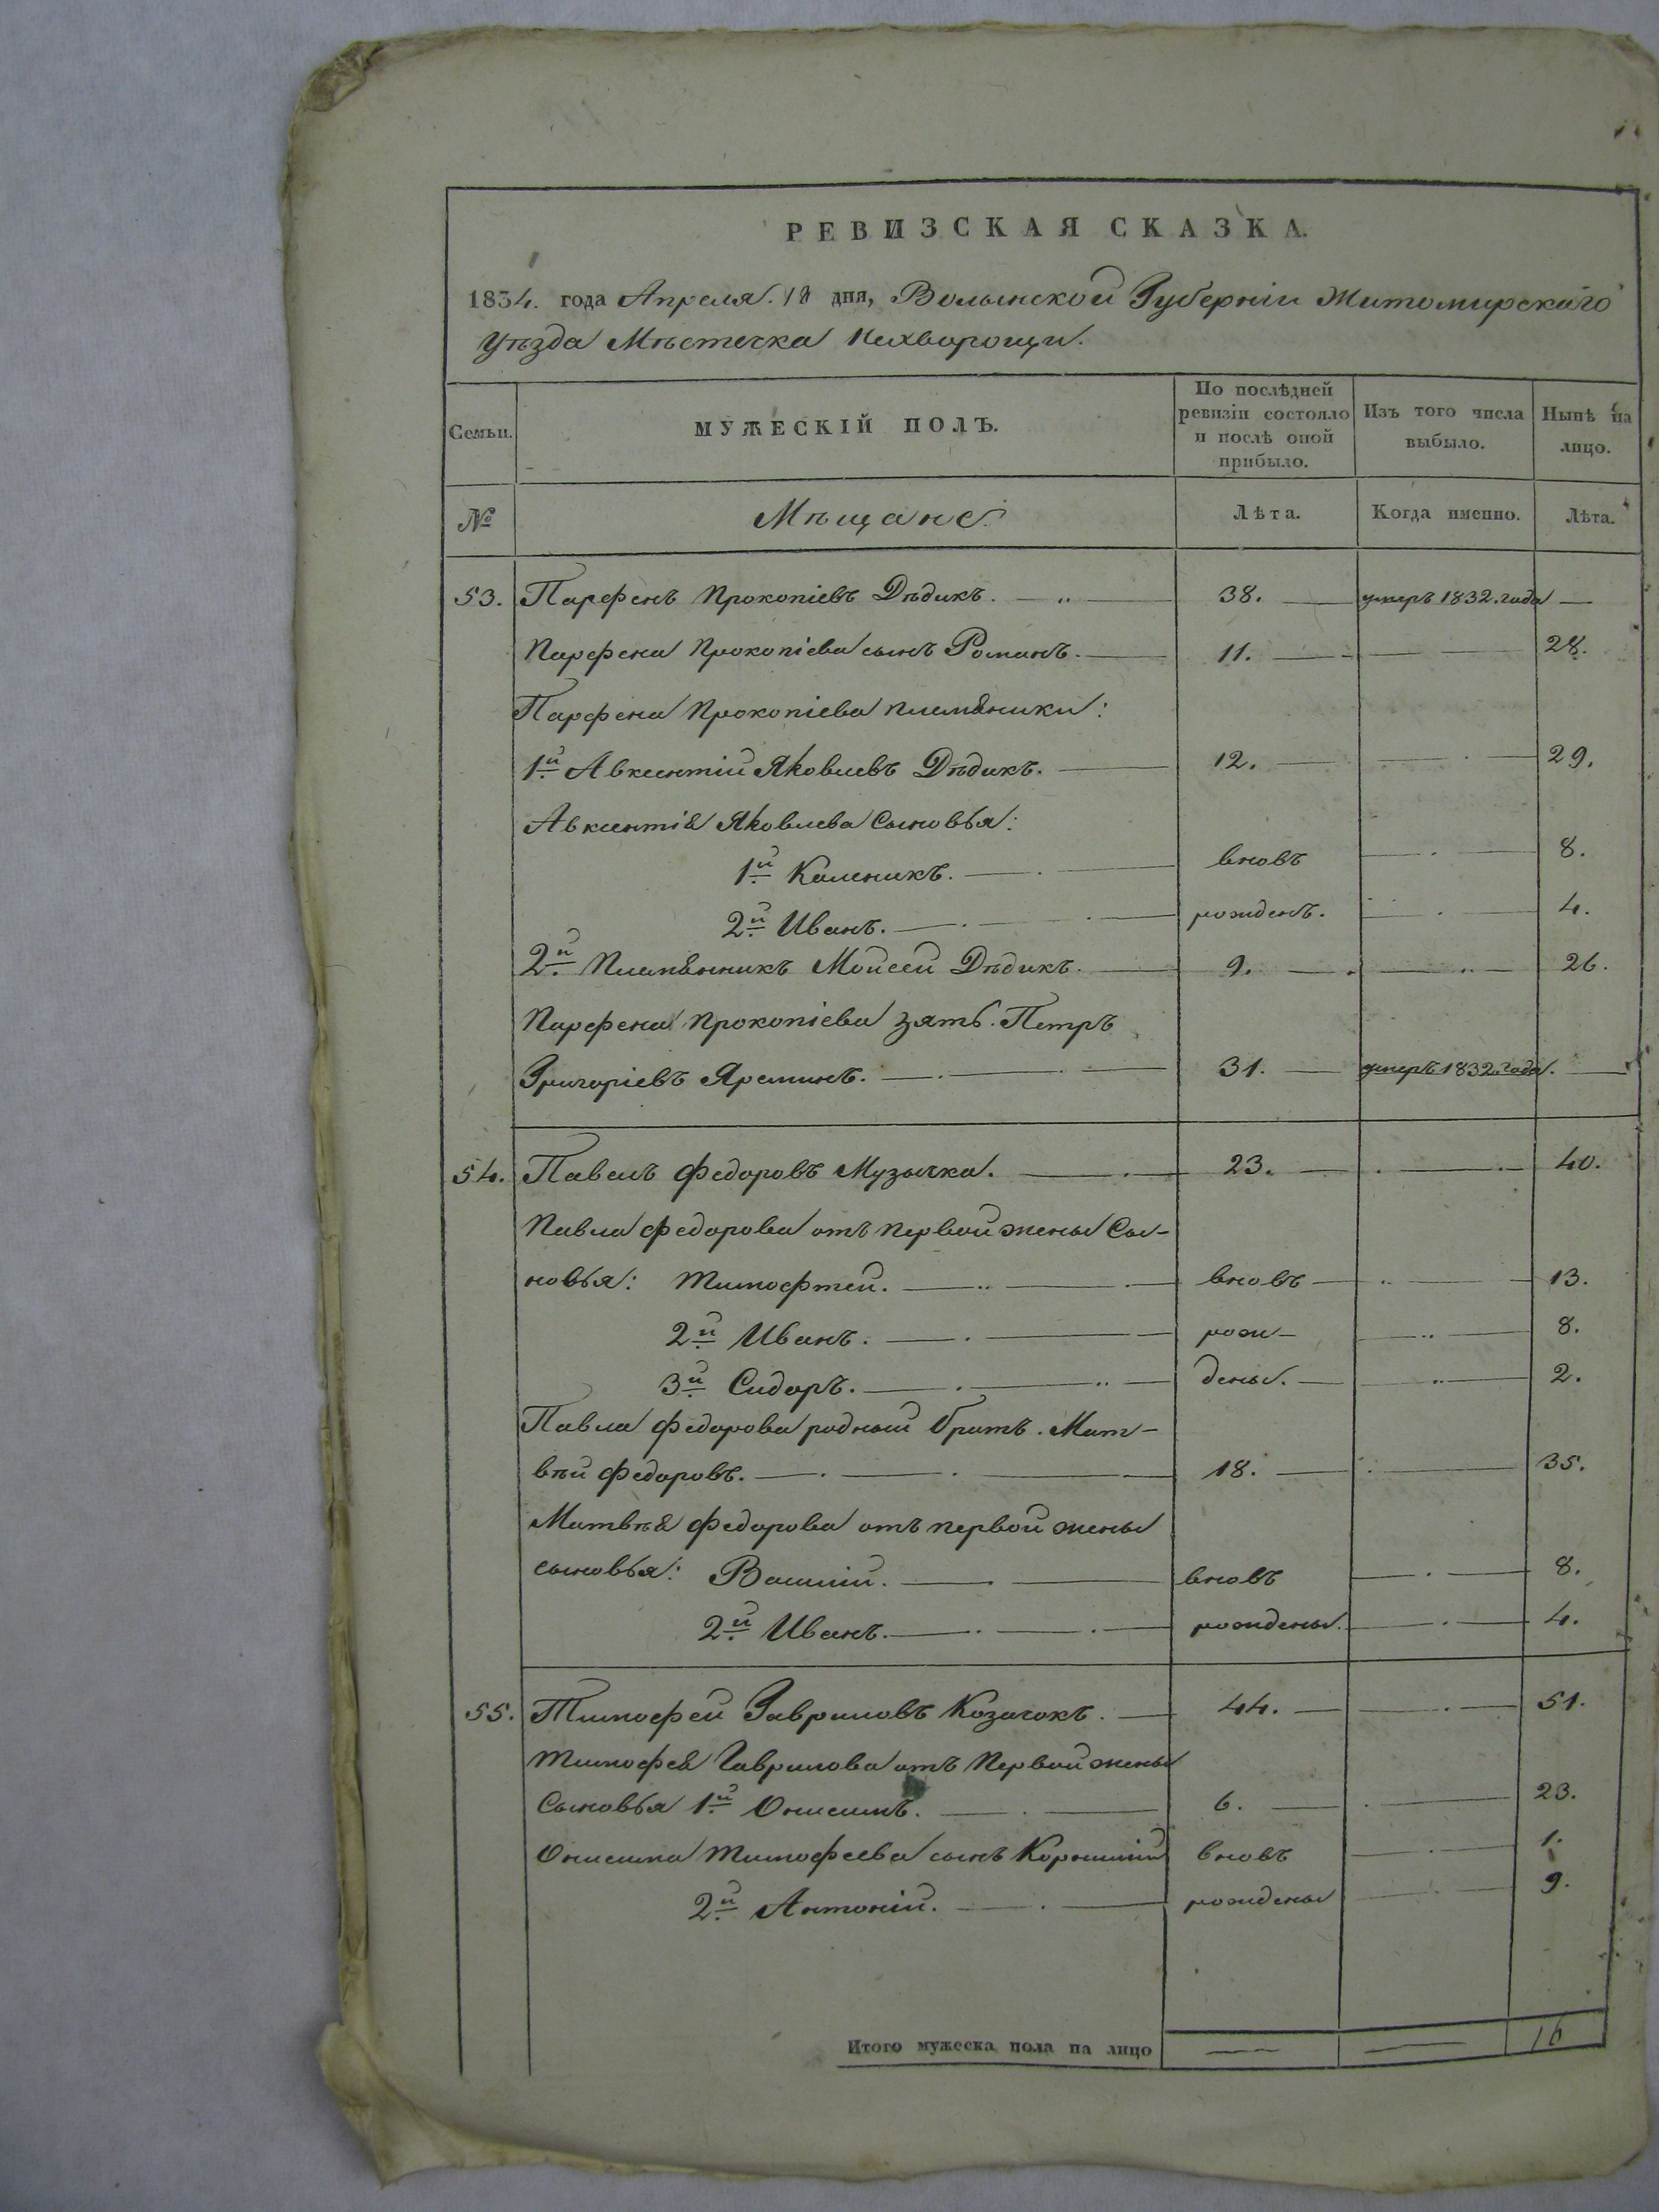 РЕВИЗСКАЯ СКАЗКА.
1834. года Апреля. 18 дня, Волынской Губернiи Житомирскаго
Уѣзда Мѣстечка Нехворощи.
Семьи. МУЖЕСКIЙ ПОЛЪ. По послѣдней ревизiи состояло и послѣ оной прибыло. Изъ того числа выбыло. Нынѣ на лицо.
№ Мѣщане. Лѣта. Когда именно. Лѣта.
53. Парфенъ Прокопiевъ Дѣдикъ. 38. умеръ 1832. года
Парфена Прокопiева сынъ Романъ. 11. 28.
Парфена Прокопiева племяники:
1й Авксентiй Яковлевъ Дѣдикъ. 12. 29.
Авксентiя Яковлева Сыновья:
1й Каленикъ. вновь 8.
2й Иванъ. рожденъ. 4.
2й Племянникъ Моисей Дѣдикъ. 9. 26.
Парфена Прокопiева зять. Петръ
Григорiевъ Яреминъ. 31. умеръ 1832. года.
54. Павелъ Федоровъ Музычка. 23. 40.
Павла Федорова отъ первой жены Сы-
новья: Тимофтей. вновь 13.
2й Иванъ. рож- 8.
3й Сидоръ. дены. 2.
Павла Федорова родный братъ. Мат-
вѣй Федоровъ. 18. 35.
Матвѣя Федорова отъ первой жены
сыновья: Василiй. вновь 8.
2й Иванъ. рождены. 4.
55. Тимофей Гавриловъ Козачокъ. 44. 51.
Тимофея Гаврилова отъ Первой жены
Сыновья 1й Онисимъ. 6. 23.
Онисима Тимофеева сынъ Корнилiй вновь 1.
2й Антонiй. рождены 9.
Итого мужеска пола на лицо 16